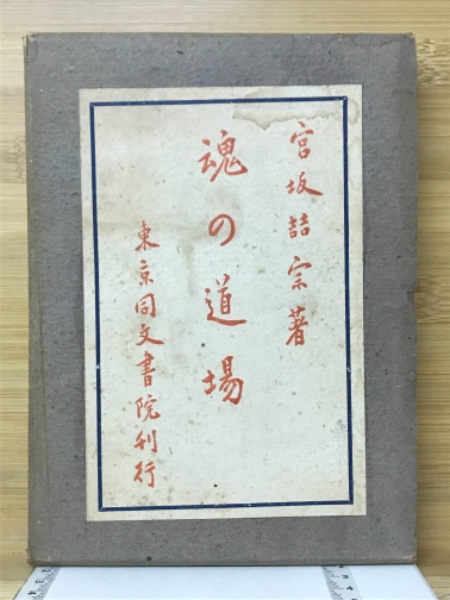 宮坂喆宗著
魂の道場
東京同文書院刊行